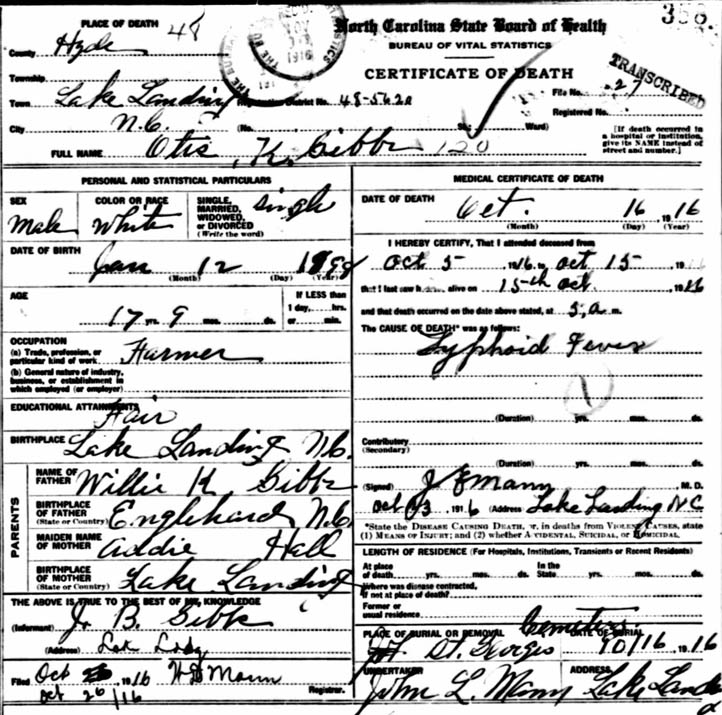 PLACE OF DEATH 48
North Carolina State Board of Health
358.
BUREAU OF VITAL STATISTICS
CERTIFICATE OF DEATH
TRANSCRIBED
County Hyde
Township
Town Lake Landing Registration District No. 48-5620 File No. 27
Registered No.
City N.C. (No. St. Ward)
[If death occurred in a hospital or institution, give its NAME instead of street and number.]
FULL NAME Otis K. Gibbs 120
PERSONAL AND STATISTICAL PARTICULARS
SEX Male
COLOR OR RACE White
SINGLE, MARRIED, WIDOWED, or DIVORCED (Write the word) Single
DATE OF BIRTH Jan 12 1898
(Month) (Day) (Year)
AGE 17 yrs. 9 mos. ds.
If LESS than 1 day, hrs. or min.
OCCUPATION
(a) Trade, profession, or particular kind of work Farmer
(b) General nature of industry, business, or establishment in which employed (or employer)
EDUCATIONAL ATTAINMENTS Fair
BIRTHPLACE Lake Landing N.C.
PARENTS
NAME OF FATHER Willie K Gibbs
BIRTHPLACE OF FATHER (State or Country) Englehard N.C.
MAIDEN NAME OF MOTHER Addie Hall
BIRTHPLACE OF MOTHER (State or Country) Lake Landing
THE ABOVE IS TRUE TO THE BEST OF MY KNOWLEDGE
(Informant) J. B. Gibbs
(Address)
Filed Oct 1916
Oct 26/16
Registrar.
MEDICAL CERTIFICATE OF DEATH
DATE OF DEATH Oct. 16 1916
(Month) (Day) (Year)
I HEREBY CERTIFY, That I attended deceased from
Oct 5 1916 to Oct 15 191
that I last saw h alive on 15th Oct. 1916
and that death occurred on the date above stated, at 5, a m.
The CAUSE OF DEATH* was as follows:
Typhoid Fever
1
(Duration) yrs. mos. ds.
Contributory
(Secondary)
(Duration) yrs. mos. ds.
(Signed) J E Mann M.D.
Oct 1916 (Address) Lake Landing N C
*State the DISEASE CAUSING DEATH, or, in deaths from VIOLENT CAUSES, state (1) MEANS OF INJURY; and (2) whether ACCIDENTAL, SUICIDAL, or HOMICIDAL
LENGTH OF RESIDENCE (For Hospitals, Institutions, Transients or Recent Residents)
At place of death yrs. mos. ds. In the State yrs. mos. ds.
Where was disease contracted, if not at place of death?
Former or usual residence
PLACE OF BURIAL OR REMOVAL Cemetery
St. Georges
DATE OF BURIAL 10/16 1916
UNDERTAKER John L. Mann
ADDRESS Lake Land